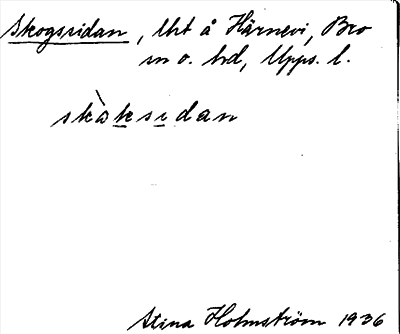 Skogssidan, lht å Härnevi, Bro
sn o. hd, Upps. l.
skàksidan
Stina Holmström 1936